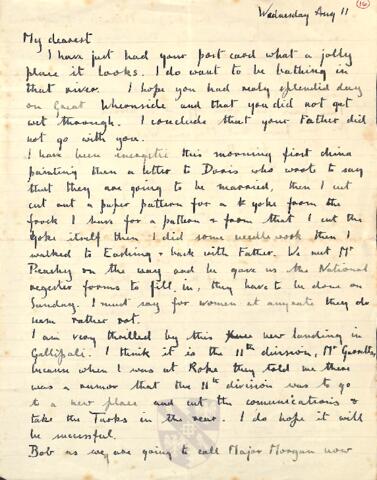 16
Wednesday Aug 11
My dearest
I have just had your post card what a jolly
place it looks. I do want to be bathing in
that river. I hope you had realy splendid day
on Great Whernside and that you did not get
wet through. I conclude that your Father did
not go with you.
I have been energetic this morning first china
painting then a letter to Doris who wrote to say
that they are going to be married, then I cut
cut out a paper pattern for a yoke from the
frock I have for a pattern & from that I cut the
yoke itself then I did some needlework then I
walked to Eashing & back with Father. We met Mr
Peachey on the way and he gave us the National
register forms to fill in, they have to be done on
Sunday. I must say for women at anyrate they do
seem rather rot.
I am very thrilled by this new landing in
Gallipoli. I think it is the 11th division, Mr
because when I was at Roke they told me there
was a rumor that the 11th division was to go
to a new place and cut the comunications &
take the Turks in the rear. I do hope it will
be sucessful.
Bob as we are going to call Major Morgan now